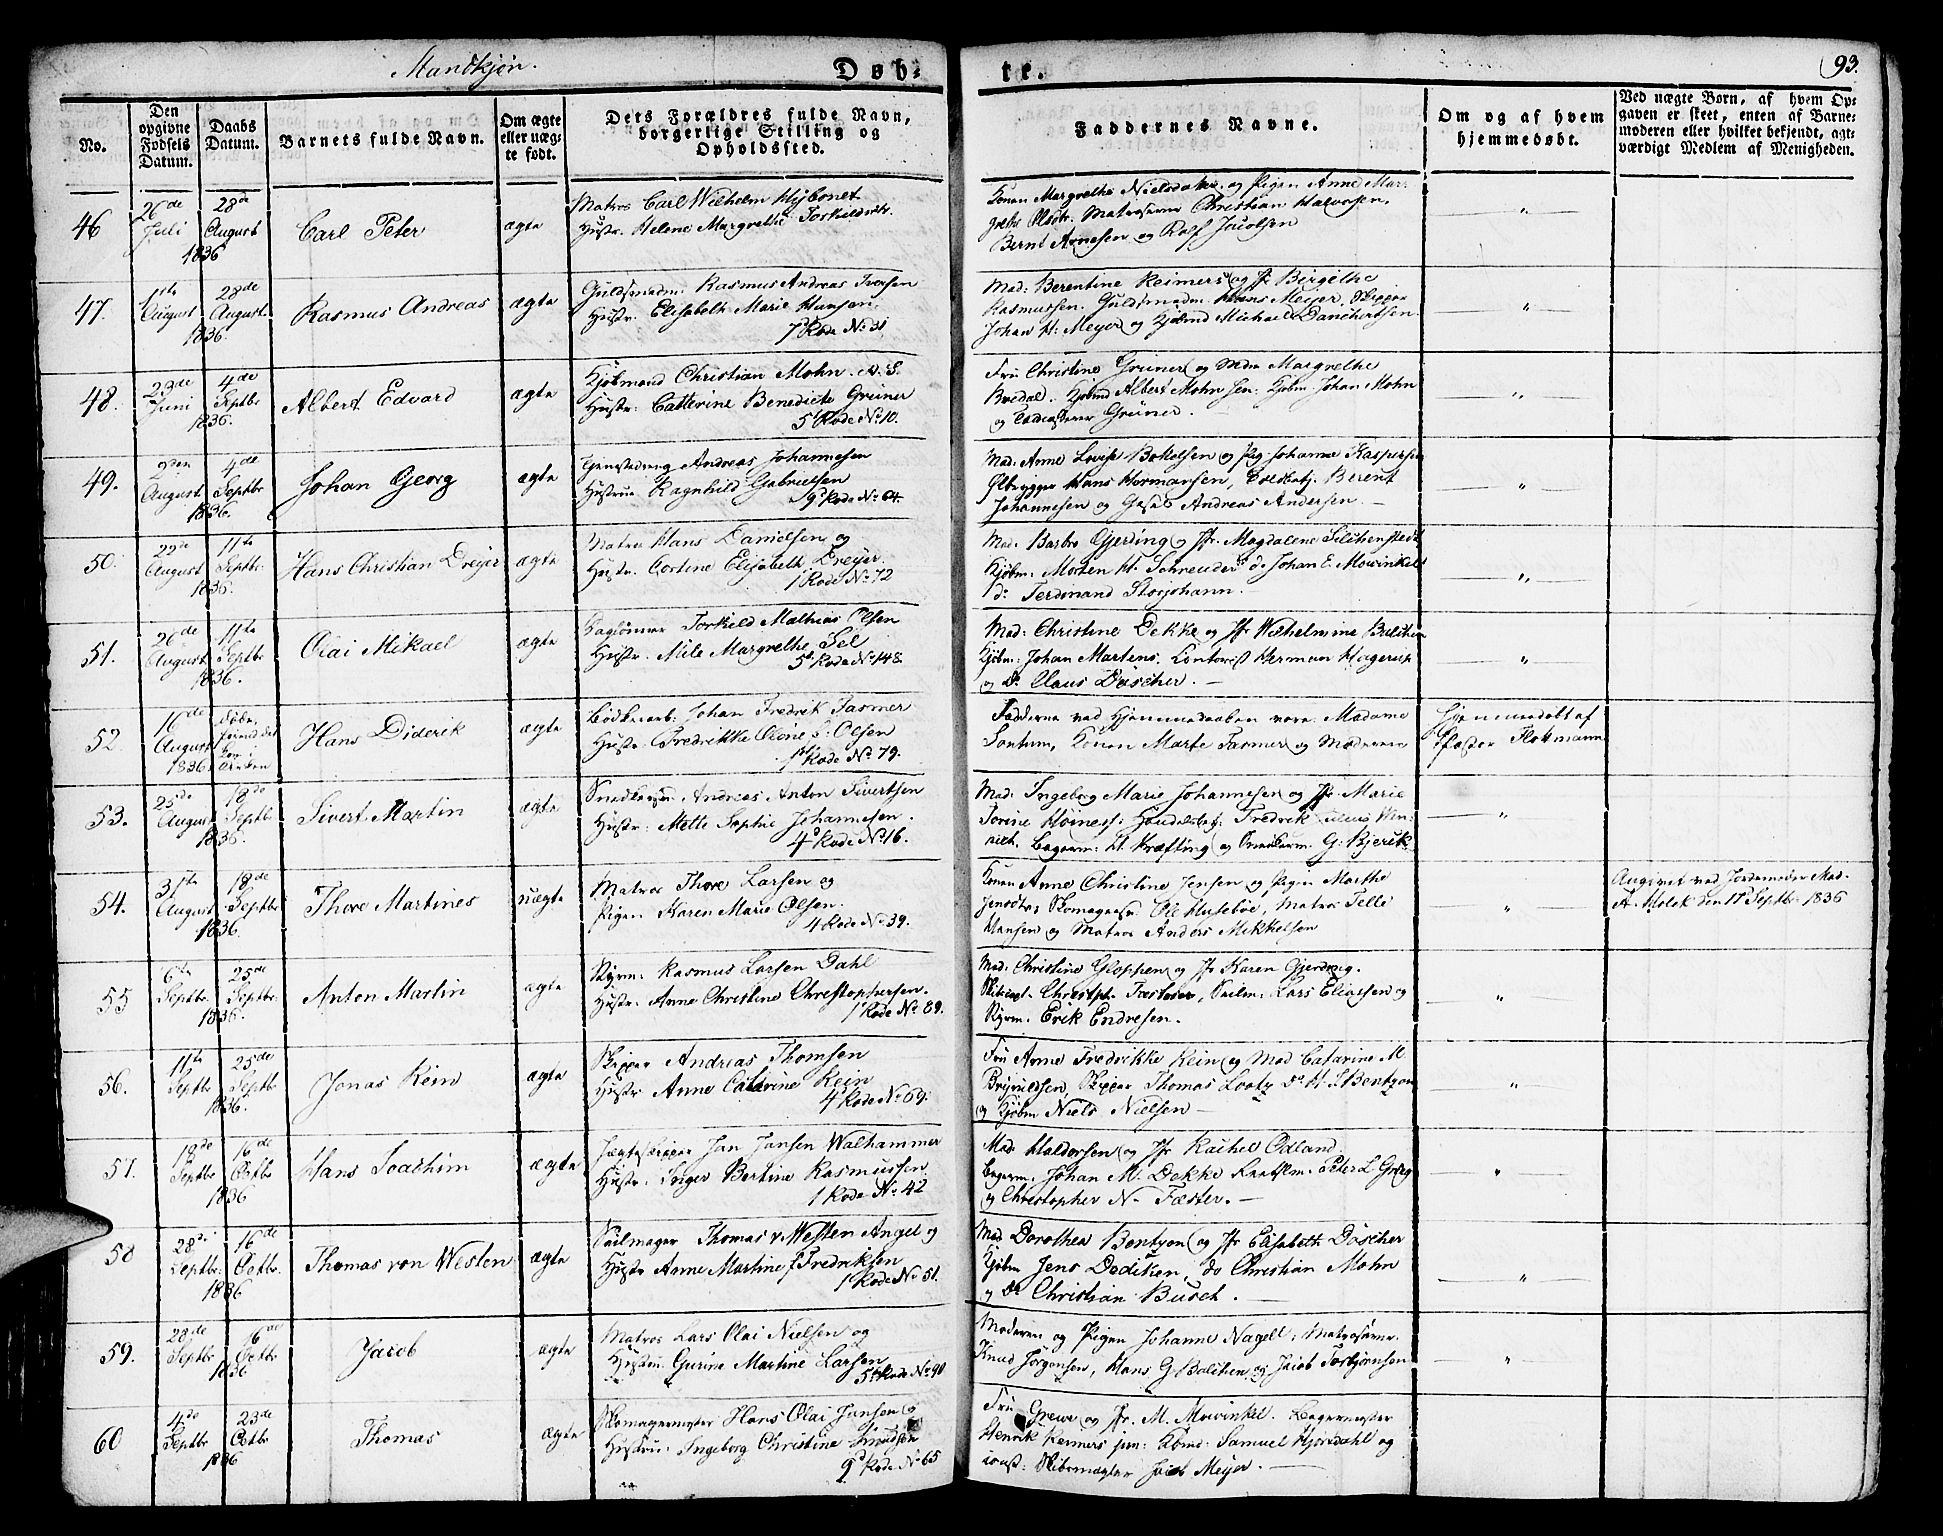 Mandkjøn.
Døb-
te.
93.
No.
Den opgivne Fødsels Datum.
Daabs Datum.
Barnets fulde Navn.
Om ægte eller uægte født.
Dets Forældres fulde Navn, borgerlige Stilling og Opholdssted.
Faddernes Navne.
Om og af hvem hjemmedøbt.
Ved uægte Børn, af hvem Opgaven er skeet, enten af Barnemoderen eller hvilket bekjendt, agtværdigt Medlem af Menigheden.
46
26de Juli
28de August
1836
Carl Peter
ægte
Matros Carl Wilhelm
Hustr. Helene Margrethe Torkildsdtr.
Konen Margrethe og Pigen Anne Mar-
grethe Olsdtr. Matroserne Christian Halvorsen,
Bernt Arnesen og Rolf Jacobsen
47.
1ste August
28de August
1836.
Rasmus Andreas
ægte
Guldsmedm. Rasmus Andreas Iversen
Hustr. Elisabeth Marie Hansen.
7 Rode No 31
Mad: Berentine Reimers og Jfr Birgithe
Rasmussen. Guldsmedm. Hans Meyer, Skipper
Johan H. Meyer og Kjøbmd Michael Danchertsen
48.
23de Juni
4de Septbr
1836.
Albert Edvard
ægte
Kjøbmand Christian Mohn. A. S.
Hustr: Catterine Benedicte Grüner
5 Rode No 10.
Fru Christine Grüner og Mdm Margrethe
Bredal. Kjøbmd Albert Mohn Sen. Kjøbm. Johan Mohn
og Grüner.
49.
August
4de Septbr
1836.
Johan Georg
ægte
Tjenestedreng Andreas Johannesen
Hustrue Ragnhild Gabrielsen
9 Rode No 64.
Mad: Anne Lovise Bokelsen og Pig: Johanne Kaspersen
Ølbrygger Hans Hormansen, Berent
Johannesen og Andreas Andersen
50.
22de August
11te Septbr.
1836.
Hans Christian Dreyer
ægte
Matros Hans Danielsen og
Hustr. Cortine Elisabeth Dreyer.
1 Rode No 72
Mad. Barbro Gjerding og Jfr. Magdalene
Kjøbm: Morten H. Schreuder do Johan E. Mowinkel
do Ferdinand Storjohann.
51.
26de August
11te Septbr
1836.
Olai Mikael
ægte
Daglønner Torkild Mathias Olsen
Hustr. Mile Margrethe Sel
5 Rode No 148
Mad: Christine Dekke og Jfr Wilhelmine Balchen
Kjøbm: Johan Martens. Contorist Herman Hagerup
og Do Claus Døscher.
52
16de August
1836
Hans Diderik
ægte
Bødkerarb: Johan Fredrik Fasmer
Hustr. Fredrikke Olsen
1 Rode No 79.
Fadderne ved Hjemmedaaben vare: Madame
Sontum, Konen Marte Fasmer og Moderen
Hjemmedøbt af
Flottmann
53.
25de August
18de Septbr
1836.
Sivert Martin
ægte
Andreas Anton Sivertsen
Hustr: Mette Sophie Johannesen.
4 Rode No 16.
Mad. Ingeborg Marie Johannesen og Jfr Marie
Fredrik
Bagerm: H. Kræfting og G. Bjerck
54.
31te August
18de Septbr
1836.
Thore Martines
uægte
Matros Thore Larsen og
Pigen Karen Marie Olsen.
4 Rode No 39.
Konen Anne Christine Jensen og Pigen Marthe
Ole Husebøe, Matros Telle
Hansen og Matros Anders Mikkelsen
Angivet ved Jordemoder Mad.
A. Holck den 17 Septbr 1836
55
6te Septbr.
25de Septbr
1836.
Anton Martin
ægte
Styrm: Rasmus Larsen Dahl
Hustr: Anne Christine Christophersen.
1 Rode No 89.
Mad: Christine Gloppen og Jfr Karen Gjerding.
Lars Eliassen og
Styrm. Erik Endresen.
56.
11te Septbr
25de Septbr
1836.
Jonas Rein
ægte
Skipper Andreas Thomsen
Hustr Anne Catrine Rein
4 Rode No 69.
Fru Anne Fredrikke Rein og Mad Catarine M
Brynildsen, Skipper Thomas Lootz Do H. S. Bentzon
og Kjøbm Niels Nielsen
57.
18de Septbr
16de Octbr
1836
Hans Joachim
ægte
Jægteskipper Jan Jansen Walhammer
Hustr: Inger Bertine Rasmussen
1 Rode No 42
Mad Haldorsen og Jfr Rachel Odland
Bagerm. Johan M. Dekke Peter L Greeg
og Christopher N. Fæster.
58
28de Septbr.
16de Octbr.
1836
Thomas von Westen
ægte
Seilmager Thomas v. Westen Angel og
Hustr Anne Martine f Fredriksen
1 Rode No 51.
Mad Dorothea Bentzon og Jfr Elisabeth Døscher
Kjøbm Jens Dediken, do Christian Mohn
og Do Christian Busch.
59.
28de Septbr
16de Octbr
1836
Jacob
ægte
Matros Lars Olai Nielsen og
Hustru: Gurine Martine Larsen
5 Rode No 90
Moderen og Pigen Johanne Nagell. Matroserne
Knud Jørgensen, Hans G. Balchen og Jacob Torbjørnsen
60
4de Septbr
23de Octbr
1836
Thomas
ægte
Skomagermester Hans Olai Jansen og
Hustrue: Ingeborg Christine Knudsen
9 Rode No 65
Fru Grewe og Jfr. M. Mowinkel. Bagermester
Henrik Reimers jun: Samuel Hjordahl og
Jacob Meyer.